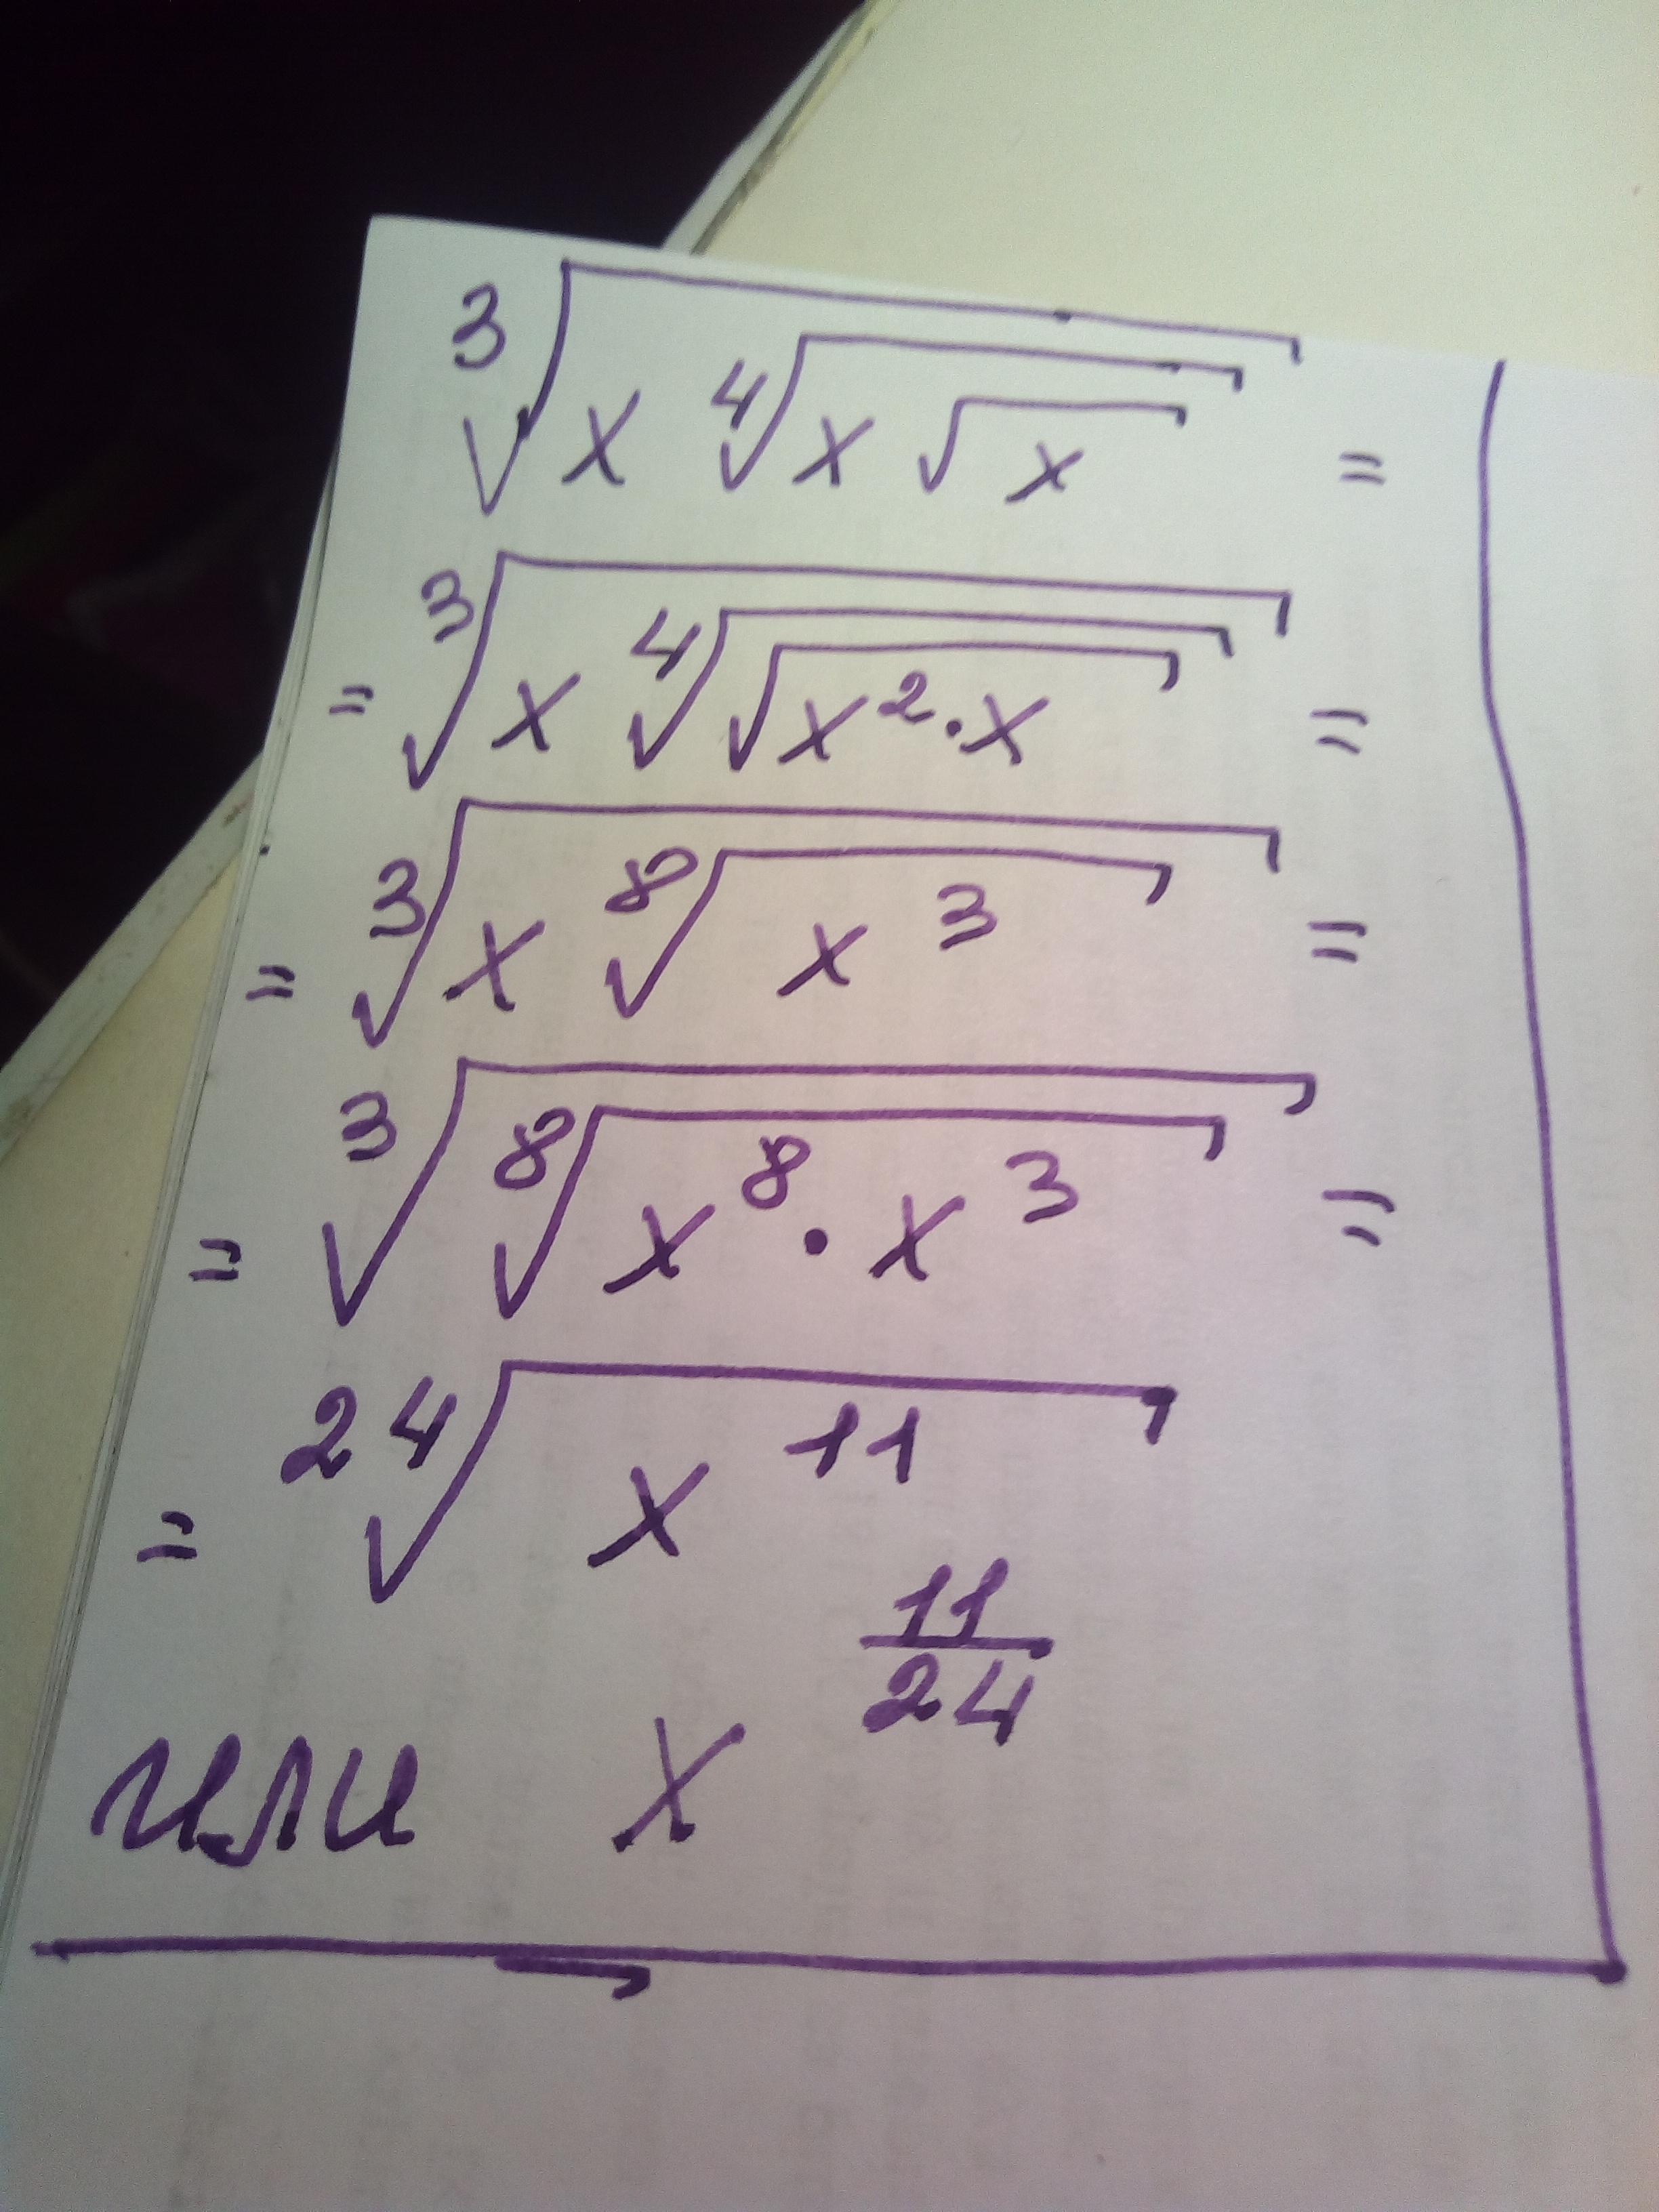 ∛(x ∜(x √x)) =
= ∛(x ∜(√(x²·x))) =
= ∛(x ⁸√(x³)) =
= ∛(⁸√(x⁸·x³)) =
= ²⁴√(x¹¹)
или x^(11/24)